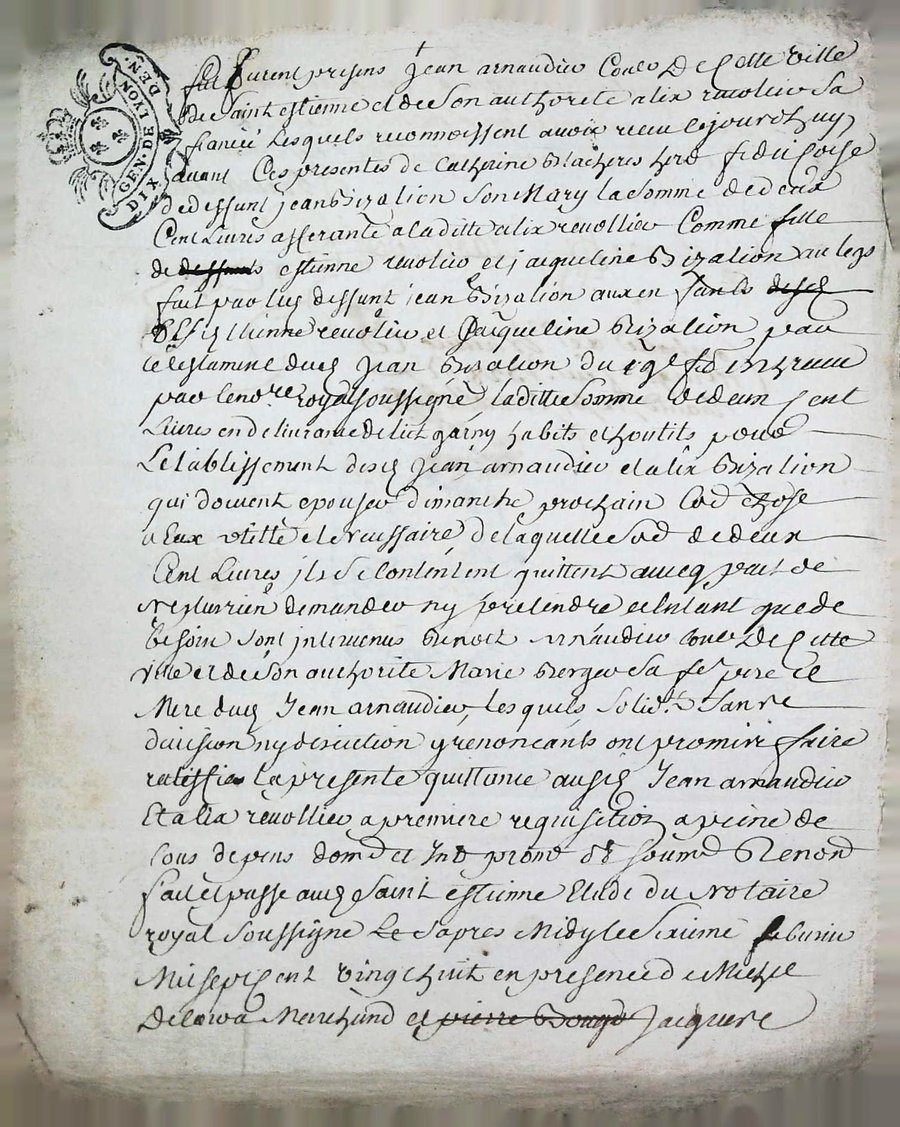 GEN. DE LYON. DEN.
DIX
furent presens Jean arnaudier Couts De Cette Ville
de Saint estienne et de son authorité alix revolier Sa
fiancée Lesquels reconnoissent avoir receu cejourdhuy
avant Ces presentes de Catherine Blacheres herd fiduciaise
de deffunt jean Brizalion Son Mary la Somme de deux
Cent Livres afferante a laditte alix revollier Comme fille
de deffunts estienne revolier et jacqueline Brizalion au legs
fait par led deffunt jean Brizalion aux en fants desd
estienne revolier et Jacqueline Brizalion par
le testament dud Jean Brizalion du receu
par le no.re royal soussigné laditte Somme de deux Cent
Livres en delivrance de lict garny habits et houtils pour
Letablissement desd Jean arnaudier et alix Brizalion
qui doivent epouser dimanche prochain Chose
a Eux utille et necessaire de laquelle de deux
Cent Livres ils Se Contentent quittent avecq pact de
nes plus rien demander ny pretendre et entant que de
besoin Sont intervenus Benoit arnaudier De Cette
ville et de Son authorité Marie Berger Sa fe. pere et
Mere dud Jean arnaudier, Lesquels Solidt. Sans
division ny discution y renoncants ont promis faire
ratiffier La presente quittance ausd Jean arnaudier
Et alix revollier a premiere requisition a peine de
tous depens dom et Int prom ob Soum Renon
fait et passé aud Saint estienne Etude du Notaire
royal Soussigné Le d'apres Midy le Sixieme febvrier
Mil sept Cent vingt huit en presence de
Marchand et pierre Jacques